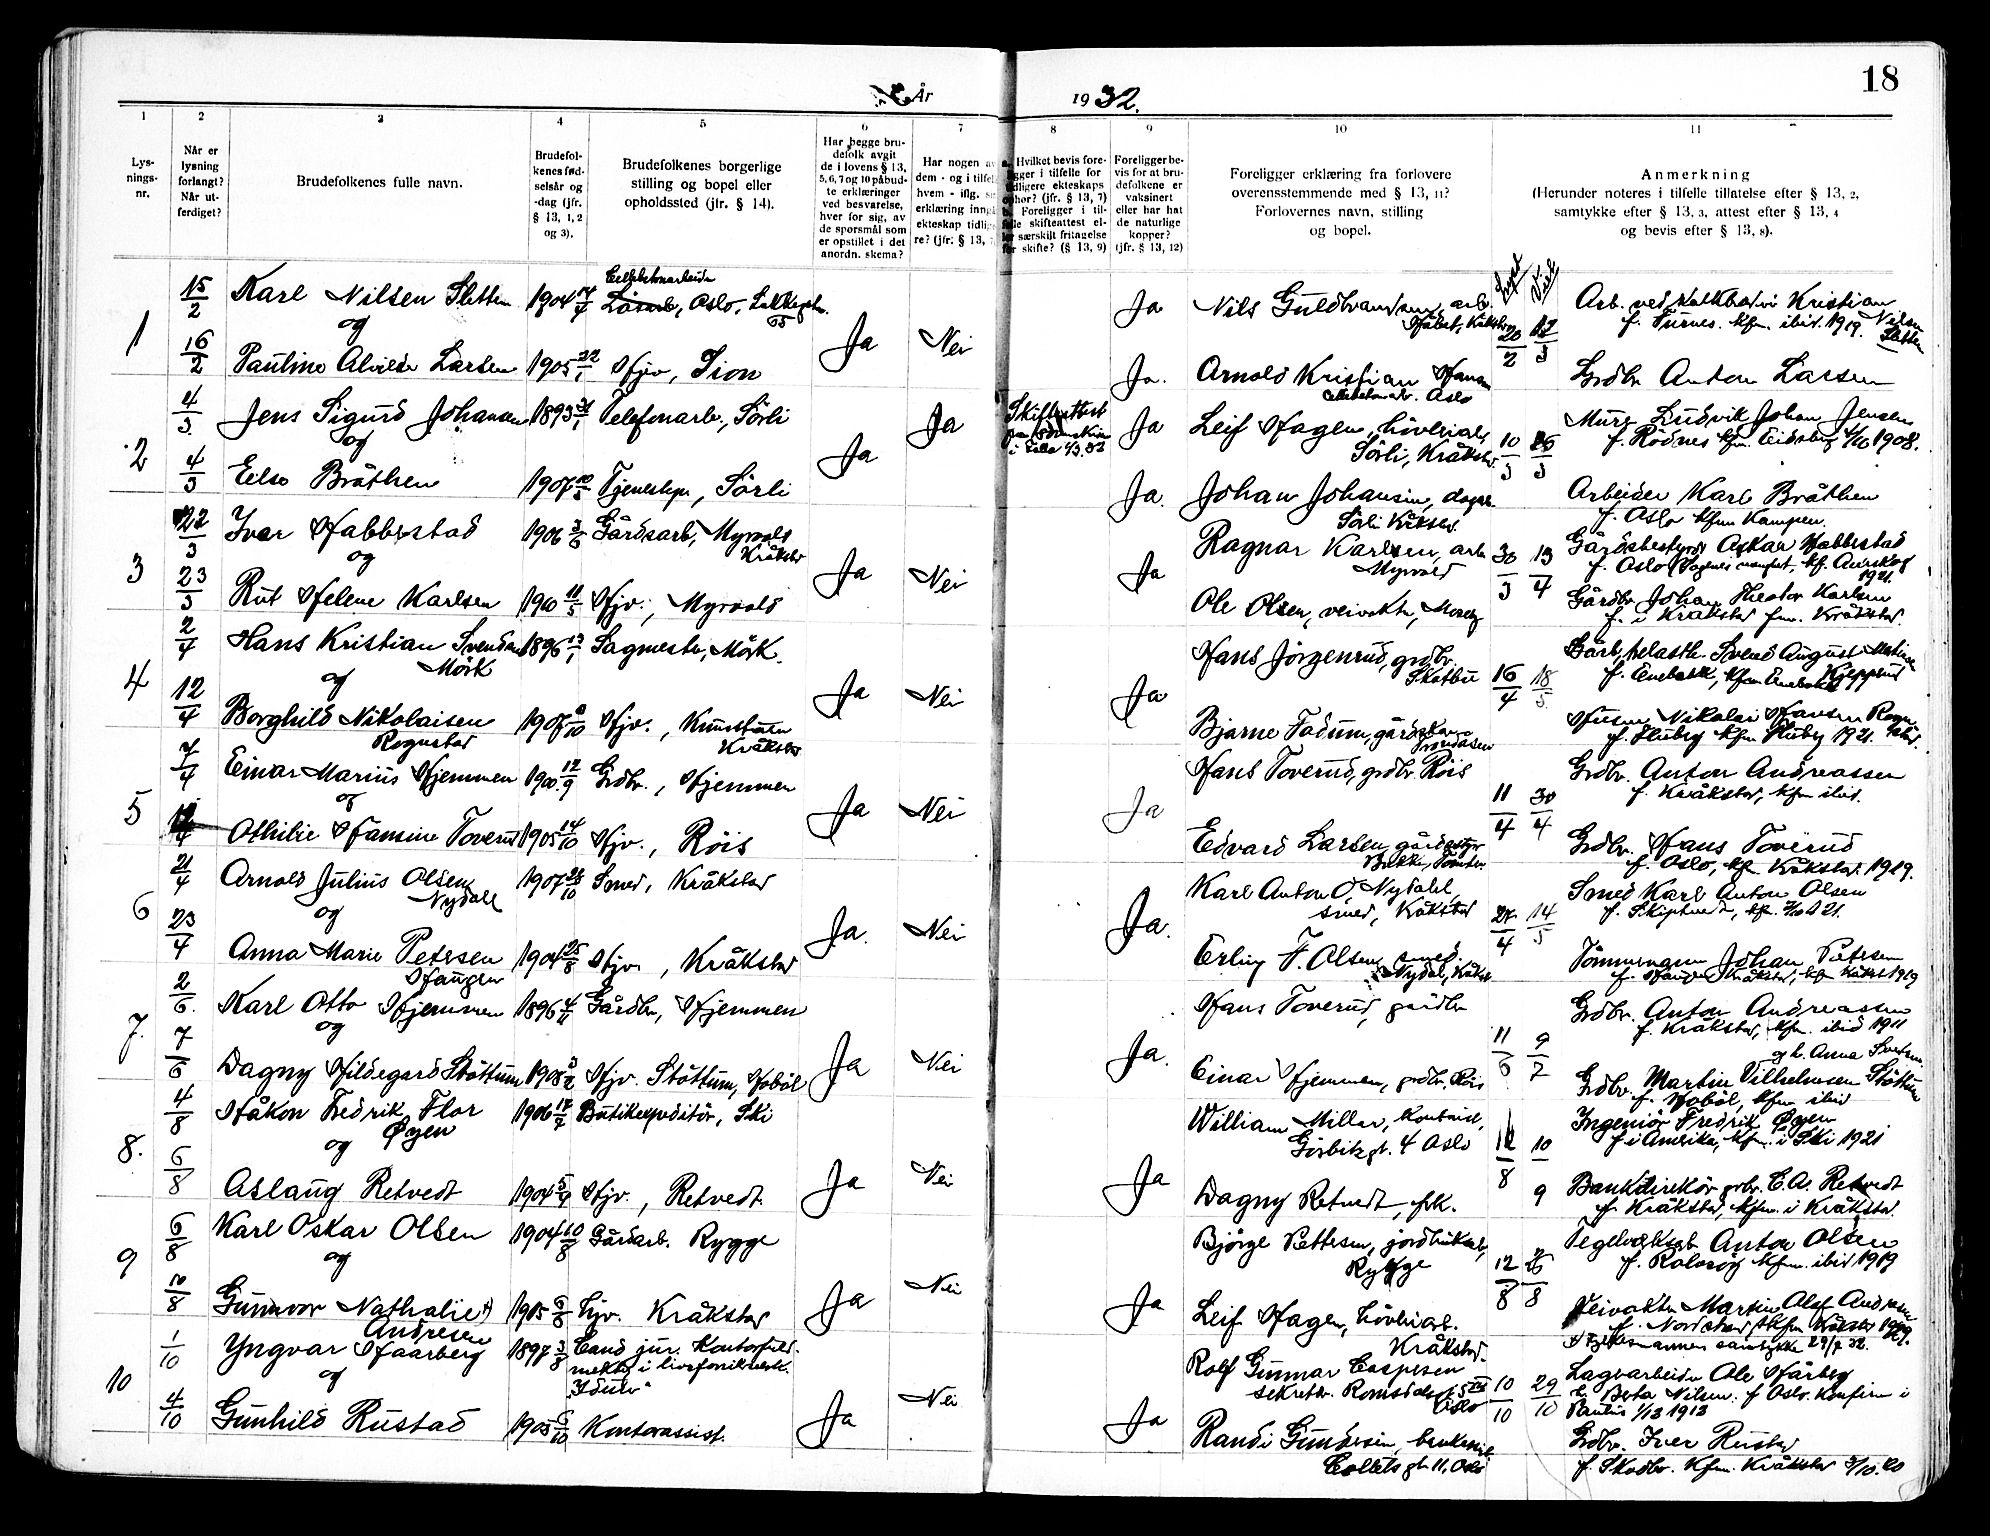 18
År 1932.
1
2
3
4
5
6
7
8
9
10
11
Lys-
nings-
nr.
Når er
lysning
forlangt?
Når ut-
ferdiget?
Brudefolkenes fulle navn.
Brudefol-
kenes fød-
selsår og
-dag (jfr.
§ 13, 1, 2
og 3).
Brudefolkenes borgerlige
stilling og bopel eller
opholdssted (jfr. § 14).
Har begge bru-
defolk avgit
de i lovens § 13,
5, 6, 7 og 10 påbud-
te erklæringer
ved besvarelse,
hver for sig, av
de spørsmål som
er opstillet i det
anordn. skema?
Har nogen av
dem - og i tilfel
hvem - iflg. sin
erklæring inngå
ekteskap tidlige
re? (jfr. § 13, 7)
Hvilket bevis fore-
ligger i tilfelle for
tidligere ekteskaps
ophør? (jfr. § 13, 7)
Foreligger i til-
felle skifteattest el-
ler særskilt fritagelse
for skifte? (§ 13, 9)
Foreligger be-
vis for at bru-
defolkene er
vaksinert
eller har hat
de naturlige
kopper?
(jfr. § 13, 12)
Foreligger erklæring fra forlovere
overensstemmende med § 13, 11?
Forlovernes navn, stilling
og bopel.
Anmerkning
(Herunder noteres i tilfelle tillatelse efter § 13, 2,
samtykke efter § 13, 3, attest efter § 13, 4
og bevis efter § 13, 8).
Lyst Viet
1
15/2 Karl Nilsen Sletten 1904 14/7 Cellebetonarbeider
Oslo, 65
og
16/2 Pauline Alvilde Larsen 1905 22/1 Hjv, Sion
Ja Nei
Ja Nils Guldbrandsen, arb.
Kråkstad
20/2 12/3
Arb. ved Kristian Nilsen Sletten
f. Furnes. kfm. ibid. 1919.
Ja. Arnold Kristian Hansen
Oslo
Grdbr. Anton Larsen
2
4/3 Jens Sigurd Johansen 1893 31/1 Telefonarb., Sörli
og
4/3 Else Bråthen 1907 10/5 Tjenestepi, Sörli
Ja Ja
Skifteattest
1/3.32
Ja Leif Hagen, hövleriarb.
Sörli, Kråkstad
10/3 26/3
Murer Ludvik Johan Jensen
f. Rödnes kfm. Eidsberg 4/10 1908.
Ja. Johan Johansen, dagarb.
Sörli Kråkstad
Arbeider Karl Bråthen
f. Oslo kfm Kampen.
3
22/3 Ivar Habberstad 1906 3/6 Gårdsarb, Myrvold
Kråkstad
og
23/3 Rut Helene Karlsen 1910 11/5 Hjv., Myrvold
Ja Nei
Ja Ragnar Karlsen, arb.
Myrvold
30/3 13/4
Gårdsbestyrer Oskar Habberstad
f. Oslo kf. Aurskog
1921.
Ole Olsen, veivokter,
Gårdbr Johan Theodor Karlsen
f. i Kråkstad kfm. Kråkstad.
4
2/4 Hans Kristian Svendsen 1896 13/1 Sagmester, Mörk.
Mörk
og
12/4 Borghild Nikolaisen
Rognstad 1907 8/10 Hjv.,
Kråkstad
Ja Nei
Ja Hans Jörgenrud, grdbr.
Skotbu
16/4 18/5
Svend August
f. Enebakk, kfm Enebakk
Bjarne Fadum,
Husm. Nikolai Hansen Rognstad
f. Fluberg kfm Fluberg 1921.
5
7/4 Einar Marius Hjemmen 1900 12/9 Grdbr., Hjemmen
og
12/4 Othilie Hansine Toverud 1905 14/10 Hjv., Röis
Ja Nei
Ja Hans Toverud, grdbr. Röis
11/4 30/4
Grdbr. Anton Andreassen
f. Kråkstad, kfm ibid.
Edvard Larsen, gårdbestyr
Bakke,
Grdbr. Hans Toverud
f. Oslo, kfm. Kråkstad 1919.
6
21/4 Arnold Julius Olsen
Nydal 1907 28/10 Smed, Kråkstad
og
23/4 Anna Marie Petersen
Haugen 1904 25/8 Hjv, Kråkstad
Ja. Nei
Ja. Karl Anton O. Nydahl,
smed, Kråkstad
24/4 14/5
Smed Karl Anton Olsen
f. Skiptvedt, kfm.
Erling F. Olsen, smed.
Nydal, Kråkst
Tömmermann Johan Petersen
f. Haugen Kråkstad, kfm Kråkst 1919
7.
2/6. Karl Otto Hjemmen 1896 4/11 Gårdbr, Hjemmen
og
7/6 Dagny Hildegard Stöttum 1908 3/2 Hjv. Stöttum, Hobøl
Ja Nei
Ja. Hans Toverud, gårdbr
11/6 9/7
Grdbr. Anton Andreassen
f. Kråkstad, kfm. ibid 1911
Einar Hjemmen, grdbr. Röis
og h. Anna
Grdbr. Martin Vilhelmsen Stöttum
f. Hobøl, kfm ibid
8.
4/8 Håkon Fredrik Flor
Øyen 1906 17/7 Butikekspeditör, Ski
og
6/8 Aslaug Retvedt 1904 5/9 Hjv., Retvedt.
Ja Nei
Ja William Millar, kontorist,
Görbitzgt. 4 Oslo
12/8 10/9
Ingeniör Fredrik Øyen
f. i Amerika, kfm. i Ski 1921
Dagny Retvedt, frk.
Bankdirektör, grbr. E. A. Retvedt
f. Kråkstad, kfm. i Kråkstad.
9
6/8 Karl Oskar Olsen 1904 10/8 Gårdsarb. Rygge
og
10/8 Gunnvor Nathalie
Andresen 1915 6/8 Hjv. Kråkstad
Ja Nei
Ja Björge Pettersen, jordbruksarb,
Rygge
12/8 26/8
Teglverksarb Anton Olsen
f. Rolvsöy kfm. ibid 1919
Leif Hagen, hövleriarb.
Kråkstad.
Veivokter Martin Olaf Andresen
f. Nordstrand, kfm Kråkstad 1929.
Fylkesmannens samtykke 29/7 32.
10
1/10 Yngvar Haarberg 1897 3/8 Cand jur. Kontorfuld-
mektig i livsforsikrselsk.
"Idun"
og
4/10 Gunhild Rustad 1905 6/10 Kontorassist.
Ja Nei
Ja Rolf Gunnar Caspersen
sekretær. Romsdals
Oslo
10/10 29/10
Lagerarbeider Ole Hårberg
h. Berta Nilsen. f. Oslo. Konfirm i
Paulus 1/12 1912
Randi Gundersen,
Colletts gt. 11, Oslo
Grdbr. Iver Rustad
f. Skodbo. Kfm. Kråkstad 3/10.20